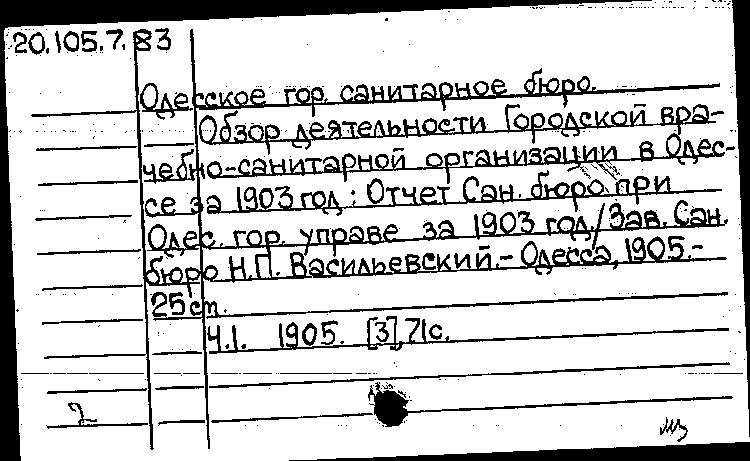 20.105.7.83
Одесское гор. санитарное бюро.
Обзор деятельности Городской вра-
чебно-санитарной организации в Одес-
се за 1903 год : Отчет Сан. бюро при
Одес. гор. управе за 1903 год / Зав. Сан.
бюро Н.П. Васильевский. - Одесса, 1905. -
25 см.
Ч.1. 1905. [3], 71с.
2